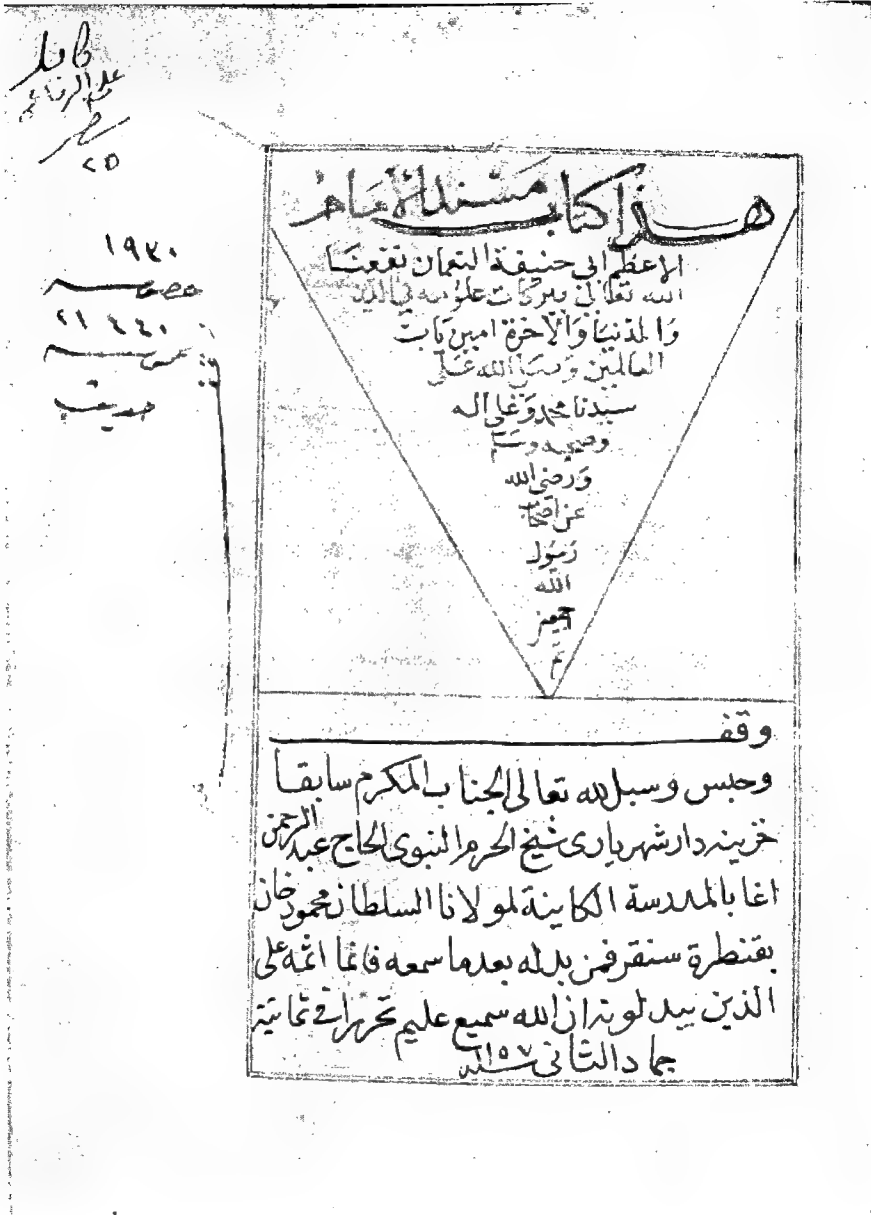 هذا كتاب مسند الامام
الاعظم ابي حنيفة النعمان نفعنا
الله تعالى ببركات علومه في الدين
والدنيا والآخرة امين يارب
العالمين وصلى الله على
سيدنا محمد وعلى اله
وصحبه وسلم
ورضي الله
عن اصحاب
رسول
الله
اجمعين
م
وقف
وحبس وسبل لله تعالى الجناب المكرم سابقا
خزينه دار شهرياري شيخ الحرم النبوي الحاج عبد الرحمن
اغا بالمدرسة الكاينة لمولانا السلطان محمود خان
بقنطرة سنقر فمن بدله بعدما سمعه فانما اثمه على
الذين يبدلونه ان الله سميع عليم تحريرا في ثمانية
جماد الثاني سنة ١١٥٧
١٩٣٠
خصوصيه
٢١٤٤٠
عموميه
حديث